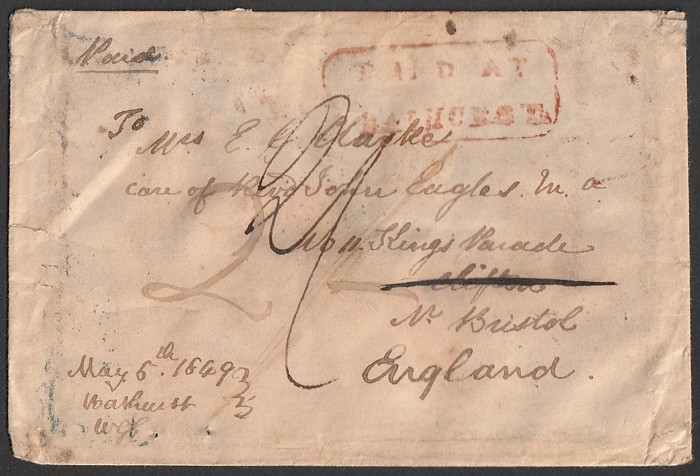 Paid
PAID AT
BATHURST
To
Mrs E. C. Clarke
care of Revd John Eagles. M. a
No 11. Kings Parade
Clifton
Nr. Bristol
England.
May 5th. 1849
Bathurst